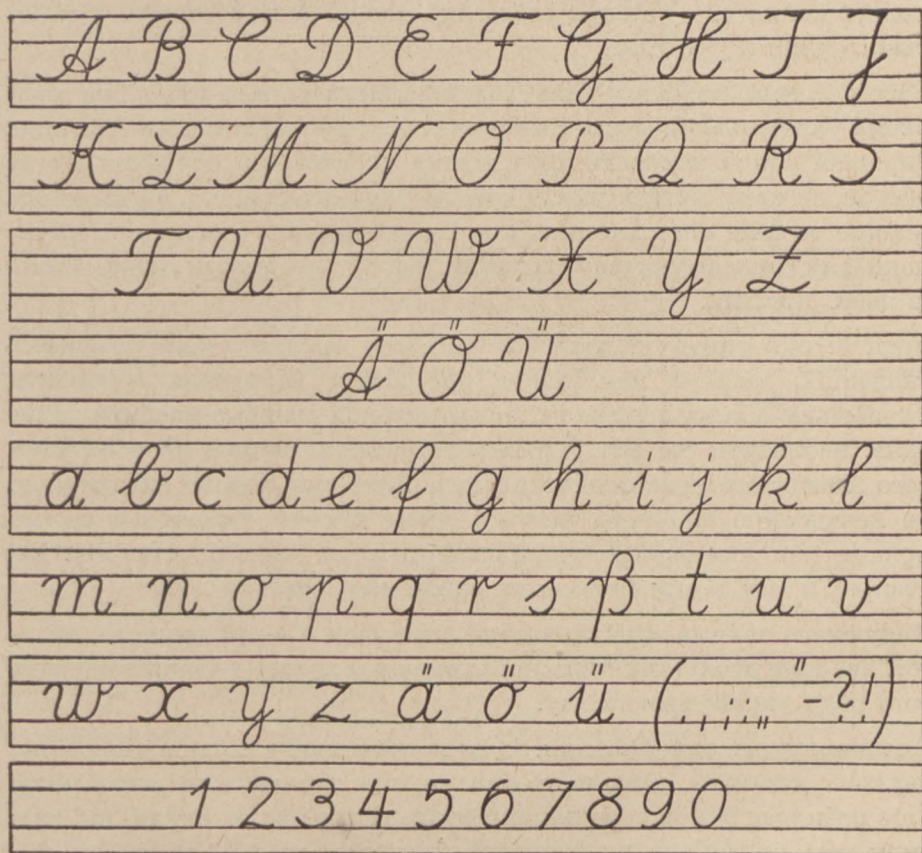 A B C D E F G H I J
K L M N O P Q R S
T U V W X Y Z
Ä Ö Ü
a b c d e f g h i j k l
m n o p q r s ß t u v
w x y z ä ö ü ( . , ; : „ " - ? ! )
1 2 3 4 5 6 7 8 9 0